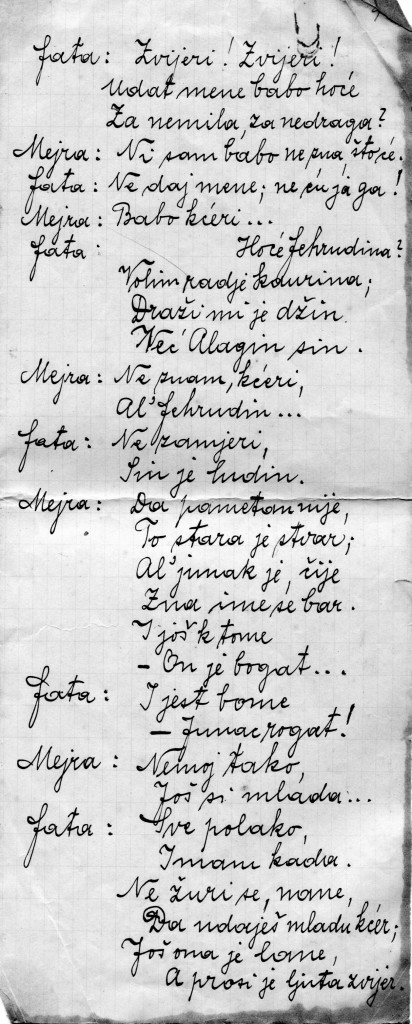 Fata: Zvijeri! Zvijeri!
Udat mene babo hoće
Za nemila, za nedraga?
Mejra: Ni sam babo ne zna, što će.
Fata: Ne daj mene; ne ću ja ga!
Mejra: Babo kćeri...
Fata: Hoće Fehrudina?
Volim radje kaurina;
Draži mi je džin
Već Alagin sin.
Mejra: Ne znam, kćeri,
Al' Fehrudin...
Fata: Ne zamjeri,
Sin je ludin.
Mejra: Da pametan nije,
To stara je stvar;
Al' junak je, čije
Zna ime se bar.
I još k tome
- On je bogat...
Fata: I jest bome
- Junac rogat!
Mejra: Nemoj tako,
Još si mlada...
Fata: Sve polako,
Imam kada.
Ne žuri se, nane,
Da udaješ mladu kćer;
Još ona je lane,
A prosi je ljuta zvijer.